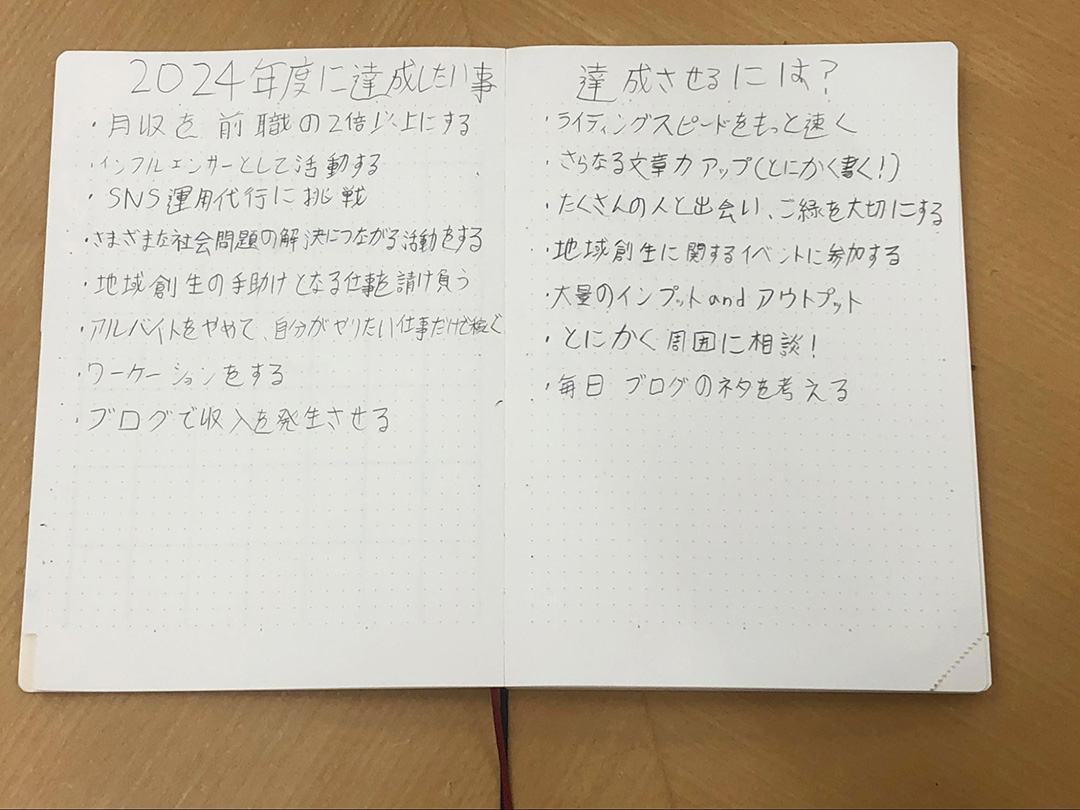 2024年度に達成したい事
・月収を前職の2倍以上にする
・インフルエンサーとして活動する
・SNS運用代行に挑戦
・さまざまな社会問題の解決につながる活動をする
・地域創生の手助けとなる仕事を請け負う
・アルバイトをやめて、自分がやりたい仕事だけで稼ぐ
・ワーケーションをする
・ブログで収入を発生させる
達成させるには?
・ライティングスピードをもっと速く
・さらなる文章力アップ(とにかく書く!)
・たくさんの人と出会い、ご縁を大切にする
・地域創生に関するイベントに参加する
・大量のインプットandアウトプット
・とにかく周囲に相談!
・毎日ブログのネタを考える